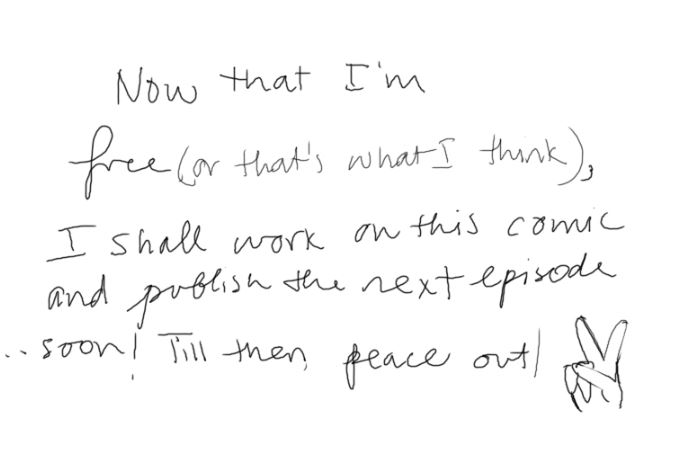 Now that I'm
free (or that's what I think),
I shall work on this comic
and publish the next episode
.. soon! Till then, peace out!